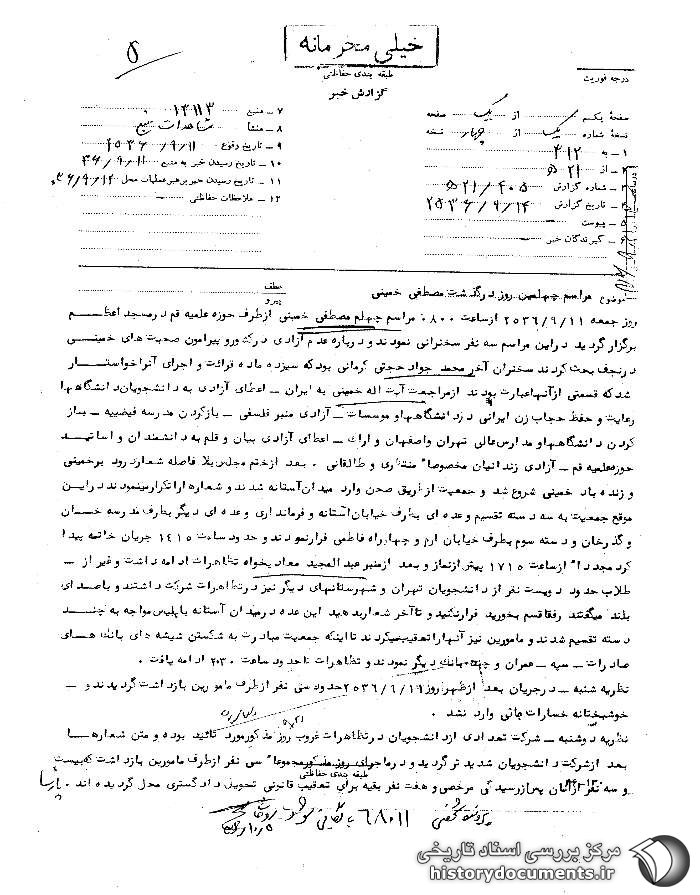 خیلی محرمانه
طبقه بندی حفاظتی
گزارش خبر
درجه فوریت
صفحه یکم از یک صفحه
نسخه شماره یک از چهار نسخه
۱ – به ۳۱۲
۲ – از ۲۱ ه‍
۳ – شماره گزارش ۵۲۱/۴۰۵
۴ – تاریخ گزارش ۲۵۳۶/۹/۱۴
۵ – پیوست
۶ – گیرندگان خبر
۷ – منبع ۱۴۱۱۳
۸ – منشأ مشاهدات منبع
۹ – تاریخ وقوع ۲۵۳۶/۹/۱۱
۱۰ – تاریخ رسیدن خبر به منبع ۳۶/۹/۱۱
۱۱ – تاریخ رسیدن خبر برهبر عملیات محل ۳۶/۹/۱۲
۱۲ – ملاحظات حفاظتی
موضوع مراسم چهلمین روز درگذشت مصطفی خمینی
عطف
پیرو
روز جمعه ۲۵۳۶/۹/۱۱ از ساعت ۰۸۰۰ مراسم چهلم مصطفی خمینی از طرف حوزه علمیه قم در مسجد اعظم
برگزار گردید در این مراسم سه نفر سخنرانی نمودند و درباره عدم آزادی در کشور و پیرامون صحبت های خمینی
در نجف بحث کردند سخنران آخر محمد جواد حجتی کرمانی بود که سیزده ماده قرائت و اجرای آنرا خواستار
شد که قسمتی از آنها عبارت بودند از مراجعت آیت اله خمینی به ایران – اعطای آزادی به دانشجویان دانشگاهها
رعایت و حفظ حجاب زن ایرانی در دانشگاهها و موسسات – آزادی منبر فلسفی – باز کردن مدرسه فیضیه – باز
کردن دانشگاهها و مدارس عالی تهران و اصفهان و اراک – اعطای آزادی بیان و قلم به دانشمندان و اساتید
حوزه علمیه قم – آزادی زندانیان مخصوصا" منتظری و طالقانی . بعد از ختم مجلس بلافاصله شعار درود بر خمینی
و زنده باد خمینی شروع شد و جمعیت از طریق صحن وارد میدان آستانه شدند و شعارها را تکرار مینمودند در این
موقع جمعیت به سه دسته تقسیم و عده ای بطرف خیابان آستانه و فرمانداری و عده ای دیگر بطرف مدرسه خان
و گذرخان و دسته سوم بطرف خیابان ارم و چهارراه فاطمی فرار نمودند و حدود ساعت ۱۴۱۵ جریان خاتمه پیدا
کرد مجددا" از ساعت ۱۷۱۵ پیش از نماز و بعد از منبر عبدالمجید معادیخواه تظاهرات ادامه داشت و غیر از
طلاب حدود دویست نفر از دانشجویان تهران و شهرستانهای دیگر نیز در تظاهرات شرکت داشتند و با صدای
بلند میگفتند رفقا قسم بخورید فرار نکنید و تا آخر شعار بدهید این عده در میدان آستانه با پلیس مواجه به چند
دسته تقسیم شدند و مامورین نیز آنها را تعقیب میکردند تا اینکه جمعیت مبادرت به شکستن شیشه های بانک های
صادرات – سپه – عمران و چند بانک دیگر نمودند و تظاهرات تا حدود ساعت ۲۰۳۰ ادامه یافت .
نظریه شنبه – در جریان بعد از ظهر روز ۲۵۳۶/۹/۱۱ حدود سی نفر از طرف مامورین بازداشت گردیدند و –
خوشبختانه خسارات جانی وارد نشد .
نظریه دوشنبه – شرکت تعدادی از دانشجویان در تظاهرات غروب روز مذکور مورد تائید بوده و متن شعارها
بعد از شرکت دانشجویان شدید تر گردید و در ماجرای روز مذکور مجموعا" سی نفر از طرف مامورین بازداشت که بیست
طبقه بندی حفاظتی
و سه نفر از آنان پس از رسیدگی مرخص و هفت نفر بقیه برای تعقیب قانونی تحویل دادگستری محل گردیده اند . پارسا
۶۸۰۱۱
مرکز بررسی اسناد تاریخی
historydocuments.ir